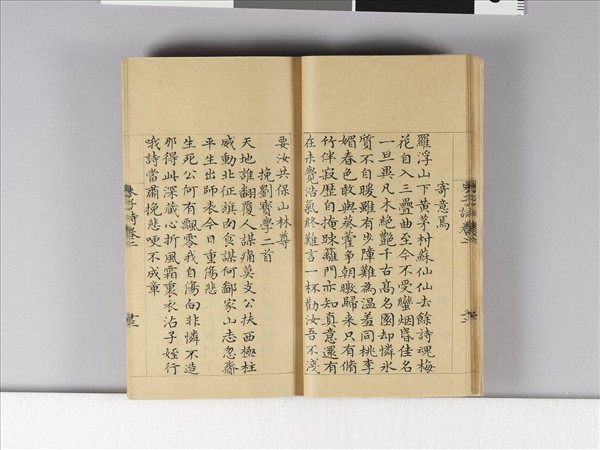 寄意焉
羅浮山下黃茅村蘇仙仙去餘詩魂梅
花自入三疊曲至今不受蠻烟昏佳名
一旦異凡木絶艷千古高名園却憐氷
質不自暖雖有步障難為溫羞同桃李
媚春色敢與葵藿争朝暾歸来只有脩
竹伴寂歴自掩踈籬門亦知真意還有
在未覺浩氣終難言一杯勸汝吾不淺
要汝共保山林尊
挽劉寳學二首
天地誰翻覆人謀痛莫支公扶西極柱
威動北征旗肉食謀何鄙家山志忽齋
平生出師表今日重傷悲
生死公何有飄零我自傷向非憐不造
那得此深藏心折風霜裏衣沾子姪行
哦詩當肅挽悲哽不成章